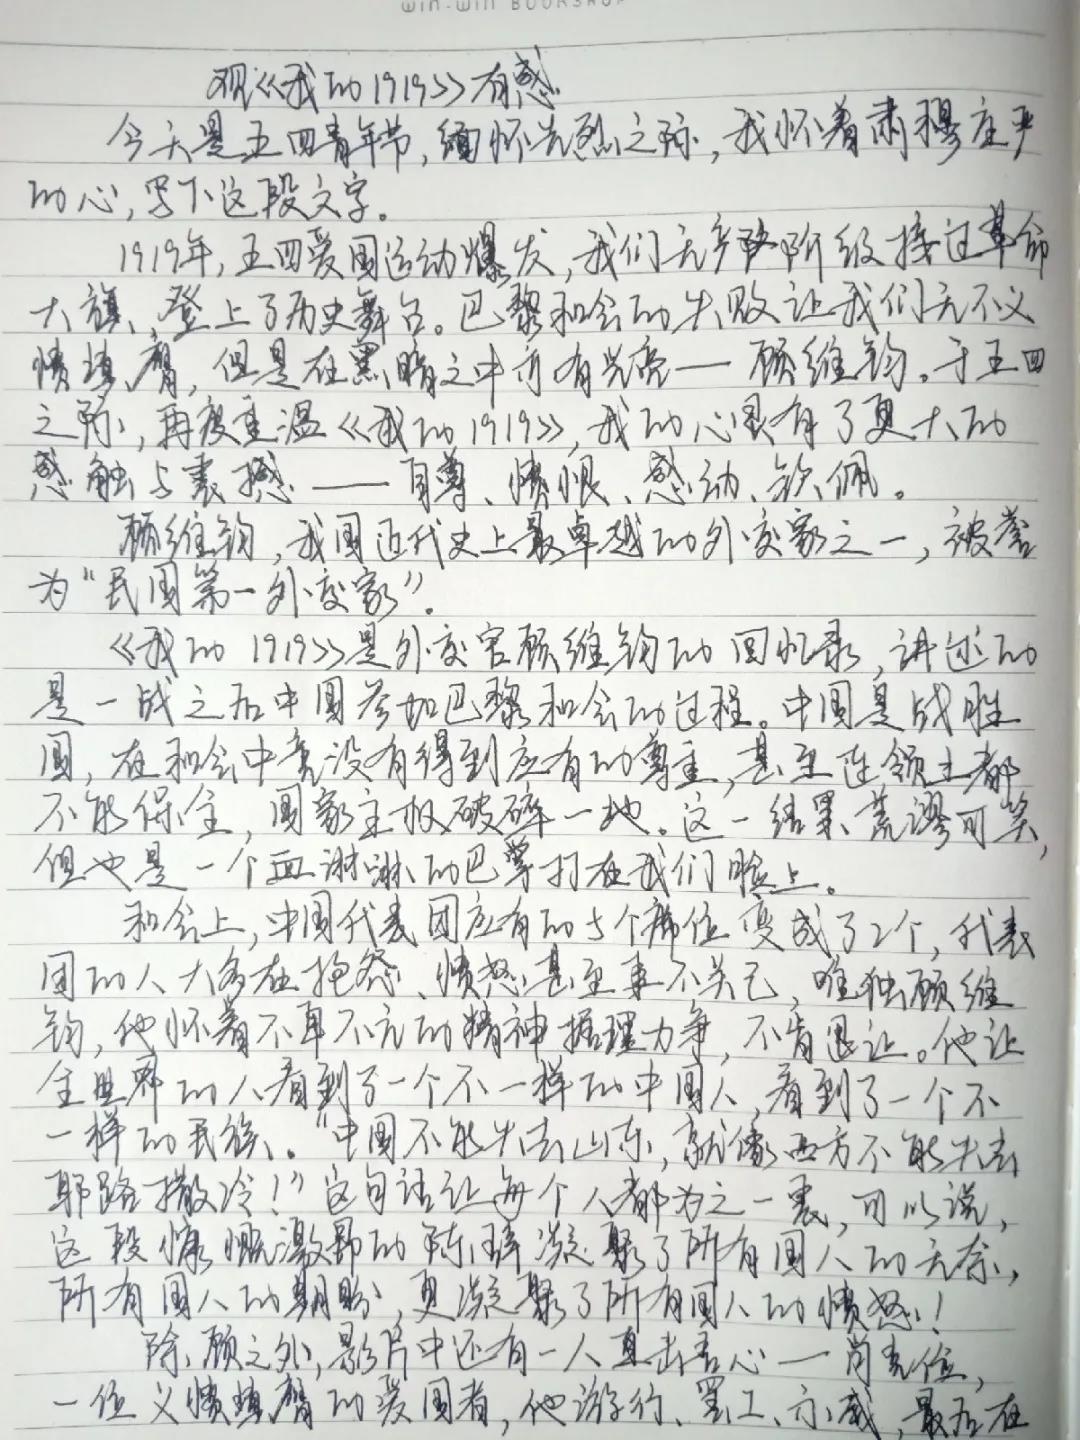 win-win BOOKSHOP
观《我的1919》有感
今天是五四青年节,缅怀先烈之际,我怀着肃穆庄严
的心,写下这段文字。
1919年,五四爱国运动爆发,我们无产阶级接过革命
大旗,登上了历史舞台。巴黎和会的失败让我们无不义
愤填膺,但是在黑暗之中亦有光亮——顾维钧。于五四
之际,再度重温《我的1919》,我的心里有了更大的
感触与震撼——自尊、愤恨、感动、钦佩。
顾维钧,我国近代史上最卓越的外交家之一,被誉
为“民国第一外交家”。
《我的1919》是外交官顾维钧的回忆录,讲述的
是一战之后中国参加巴黎和会的过程。中国是战胜
国,在和会中竟没有得到应有的尊重,甚至连领土都
不能保全,国家主权破碎一地。这一结果荒谬可笑,
但也是一个血淋淋的巴掌打在我们脸上。
和会上,中国代表团应有的5个席位变成了2个,代表
团的人大多在抱怨、愤怒甚至事不关己,唯独顾维
钧,他怀着不卑不亢的精神据理力争,不肯退让。他让
全世界的人看到了一个不一样的中国人,看到了一个不
一样的民族。“中国不能失去山东,就像西方不能失去
耶路撒冷!”这句话让每个人都为之一震,可以说,
这段慷慨激昂的陈辞凝聚了所有国人的无奈,
所有国人的期盼,更凝聚了所有国人的愤怒!
除顾之外,影片中还有一人直击吾心——肖克俭,
一位义愤填膺的爱国者,他游行、罢工、示威,最后在